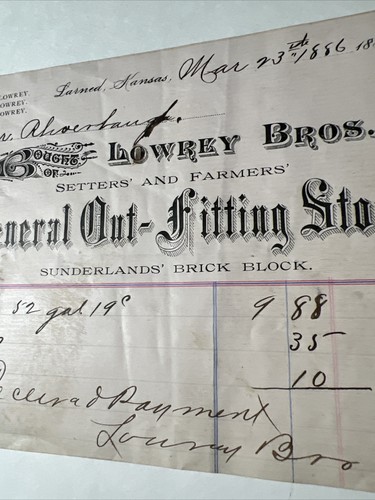 LOWREY.
OWREY.
OWREY.
Larned, Kansas, Mar 23rd 1886 18
BOUGHT OF LOWREY BROS.
SETTERS' AND FARMERS'
eneral Out-Fitting Sto
SUNDERLANDS' BRICK BLOCK.
52 gal 19c 9 88
35
10
Payment
Lowrey Bro